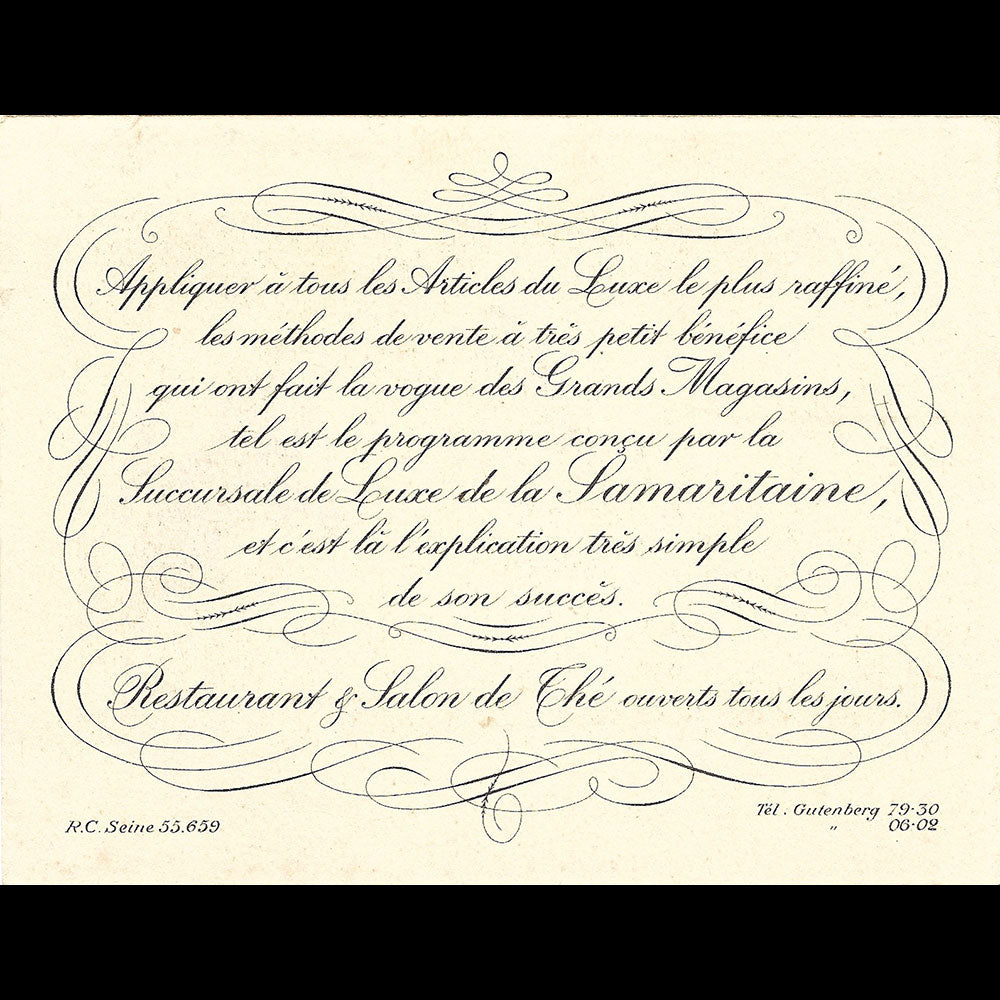 Appliquer à tous les Articles du Luxe le plus raffiné,
les méthodes de vente à très petit bénéfice
qui ont fait la vogue des Grands Magasins,
tel est le programme conçu par la
Succursale de Luxe de la Samaritaine,
et c'est là l'explication très simple
de son succès.
Restaurant & Salon de Thé ouverts tous les jours.
R.C. Seine 55.659
Tél. Gutenberg 79-30
" 06-02